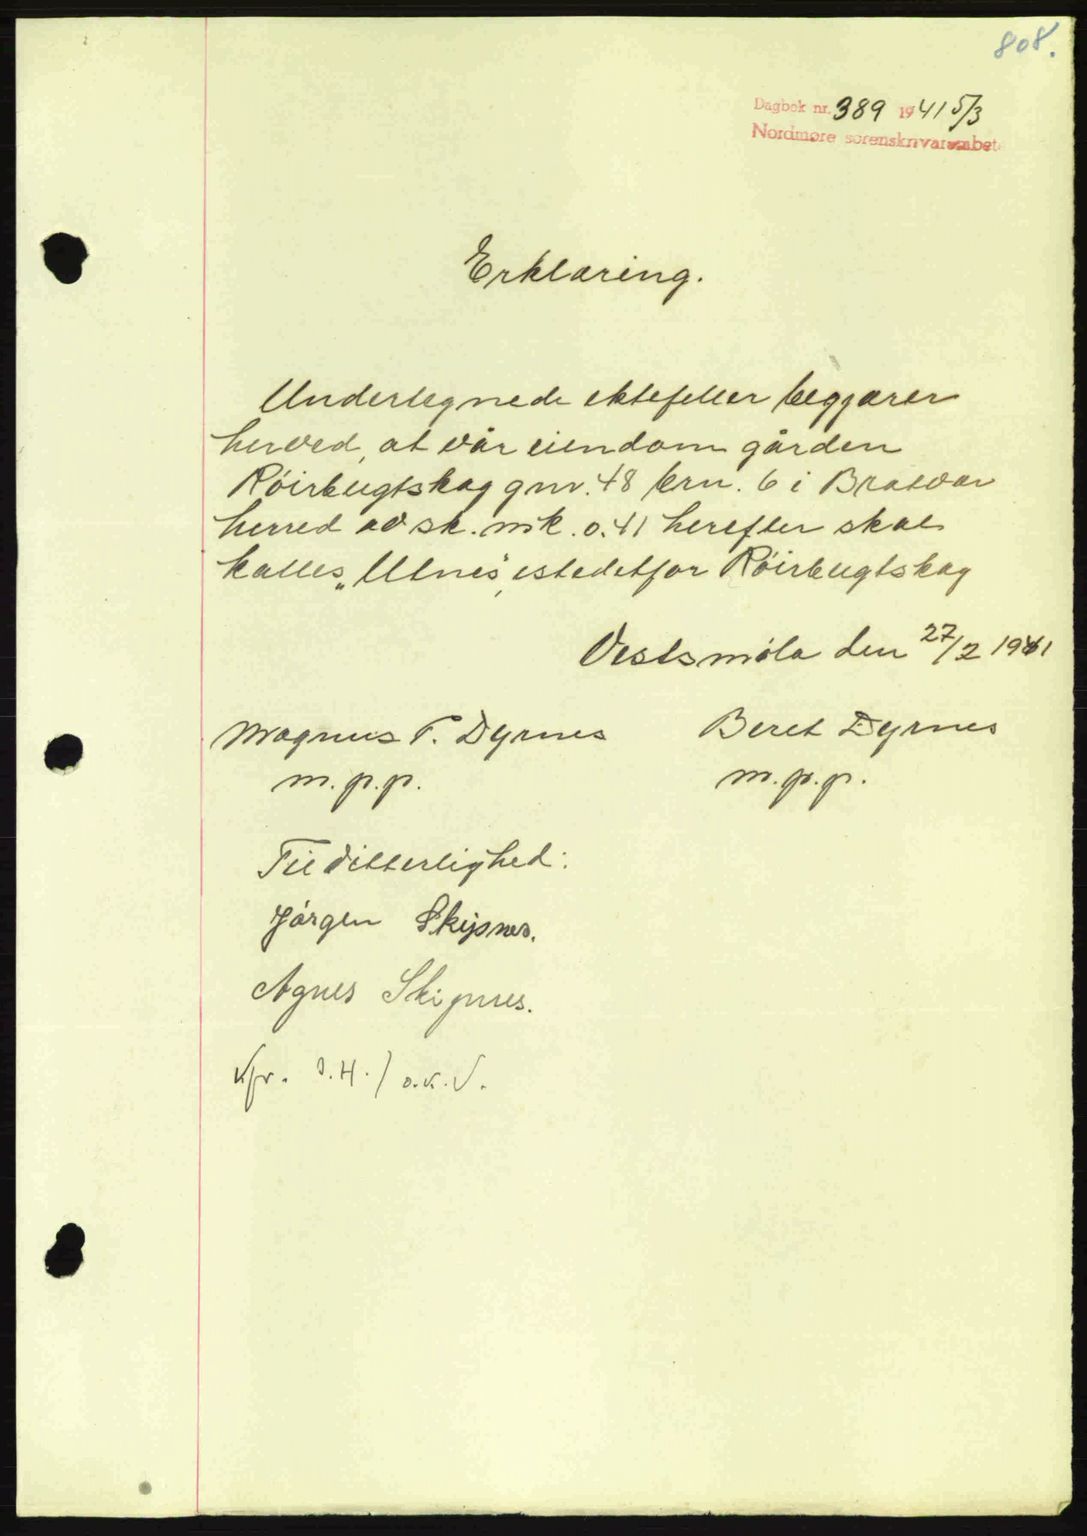 808.
Dagbok nr. 389 1941 5/3
Nordmøre sorenskriverembet
Erklæring.
Undertegnede ektefeller beggjærer
herved, at vår eiendom gården
Róirbugtskag gnr. 48 brn. 6 i Bratvær
herred av sk. mk. 0.41 herefter skal
kalles „Ulnes", istedetfor Róirbugtskag
Vestsmóla den 27/2 1941
Magnus T. Dyrnes Beret Dyrnes
m.p.p. m.p.p.
Til vitterlighed:
Jórgen Skipnes.
Agnes Skipnes.
Kfr. J.H. / O.K.V.